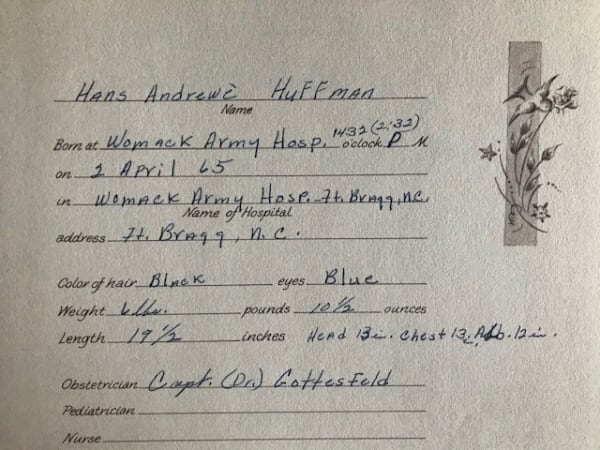 Hans Andrewè Huffman
Name
Born at Womack Army Hosp. 1432 (2:32) o'clock P M
on 2 April 65
in Womack Army Hosp. Ft. Bragg, N.C.
Name of Hospital
address Ft. Bragg, N.C.
Color of hair Black eyes Blue
Weight 6 lbs. pounds 10 1/2 ounces
Length 19 1/2 inches Head 13 in. Chest 13 Abb. 12 in.
Obstetrician Capt. (Dr.) Gottesfeld
Pediatrician
Nurse